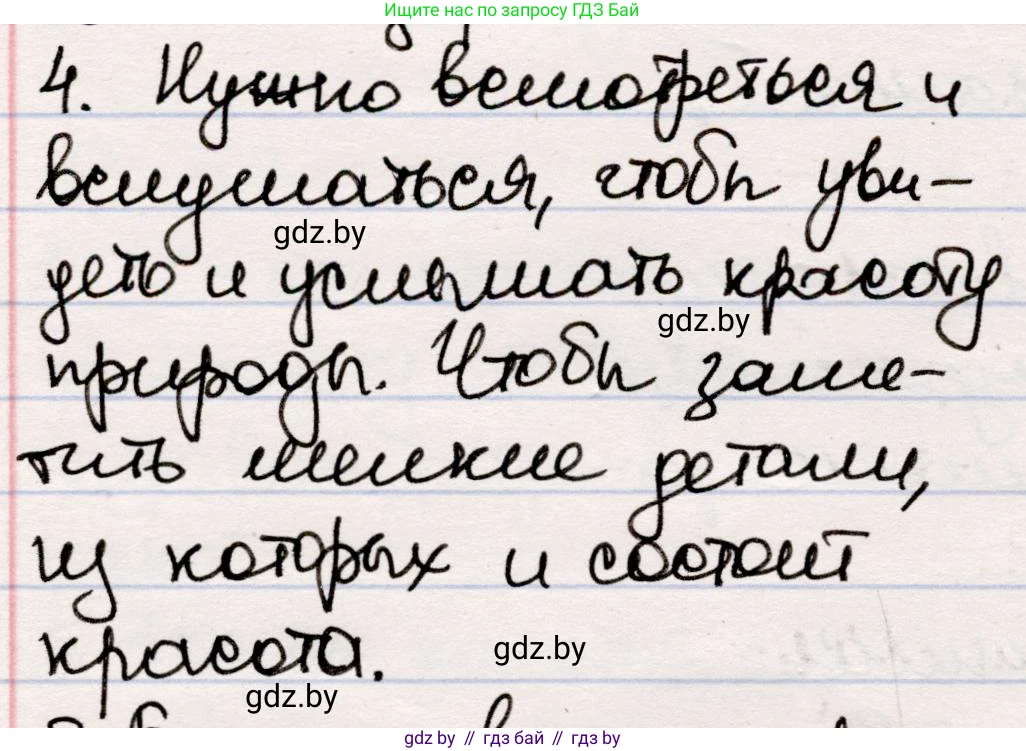 Ищите нас по запросу ГДЗ Бай
4. Нужно всмотреться и
вслушаться, чтобы уви-
gdz.by
деть и услышать красоту
gdz.by
природы. Чтобы заме-
тить мелкие детали,
из которых и состоит
красота.
gdz.by
gdz.by
gdz.by // гдз бай // gdz.by